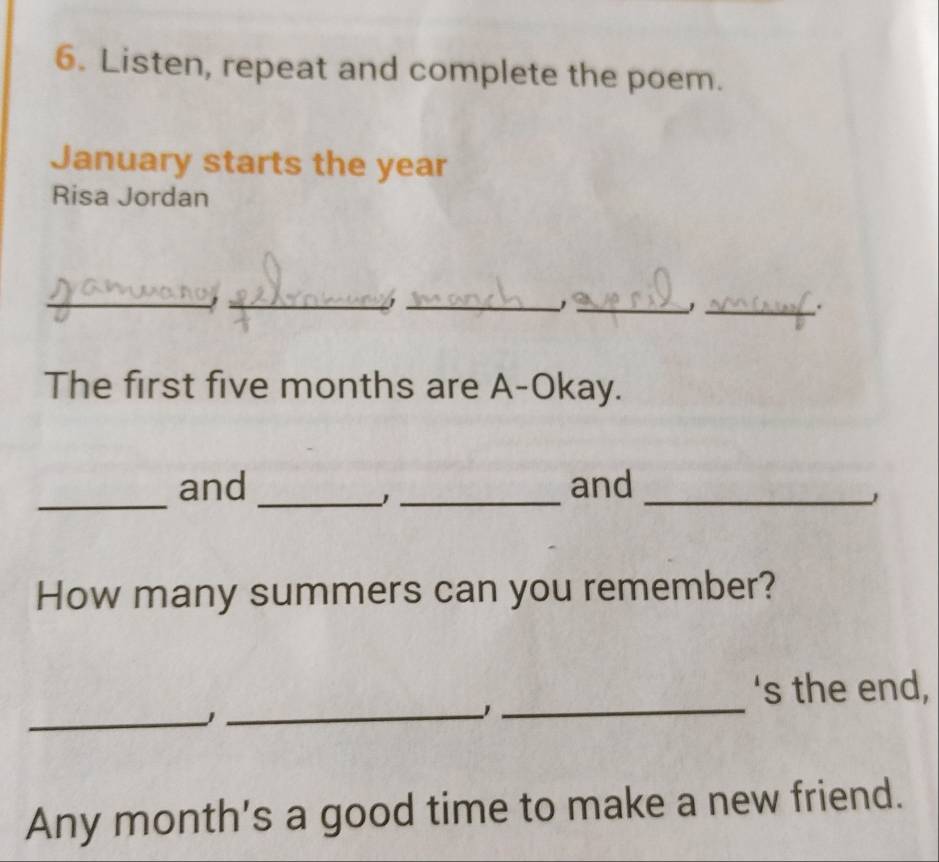 6. Listen, repeat and complete the poem.
January starts the year
Risa Jordan
, , march, april, .
The first five months are A-Okay.
______ and ______, ________ and ___________,
How many summers can you remember?
_________, _____________, ____________'s the end,
Any month's a good time to make a new friend.